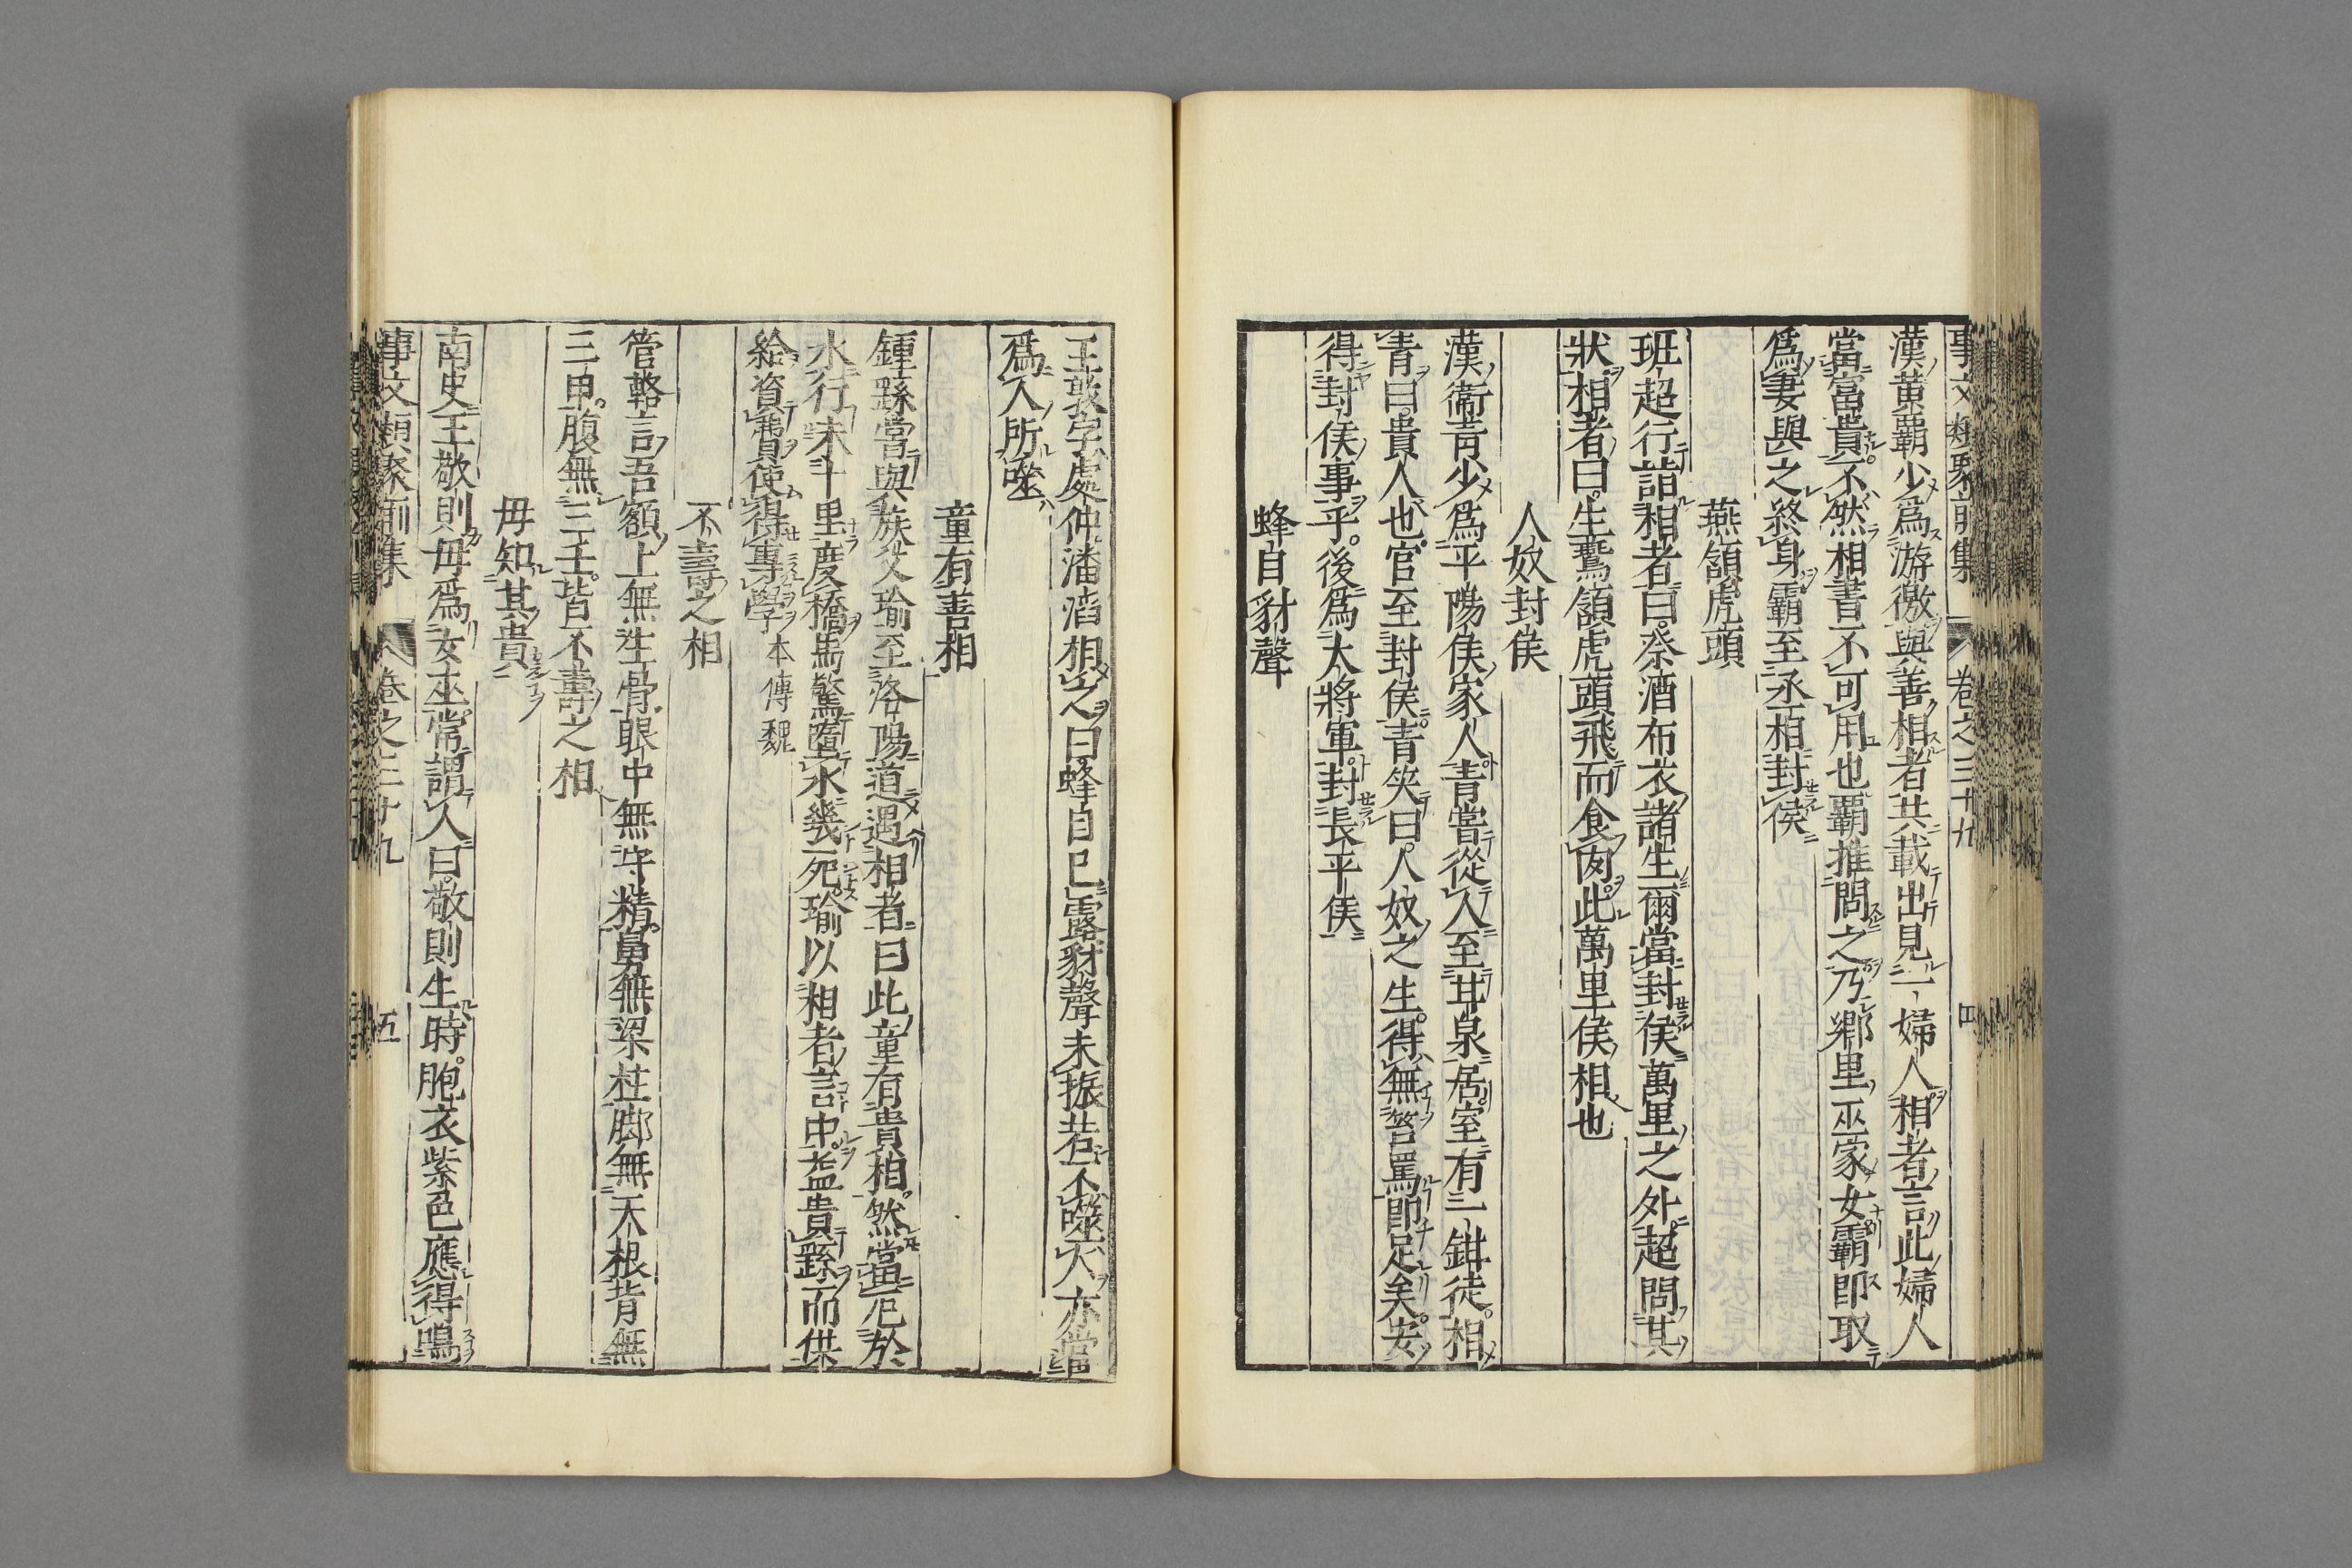 事文類聚前集 卷之三十九 四
漢黄覇少爲游徼與善相者共載出見一婦人相者言此婦人
當富貴不然相書不可用也覇推問之乃郷里巫家女覇即取
爲妻與之終身覇至丞相封侯
燕頷虎頭
班超行詣相者曰祭酒布衣諸生爾當封侯萬里之外超問其
狀相者曰生鷰頷虎頭飛而食肉此萬里侯相也
人奴封侯
漢衞青少爲平陽侯家人青嘗從人至甘泉居室有一鉗徒相
青曰貴人也官至封侯青笑曰人奴之生得無笞罵即足矣安
得封侯事乎後爲大將軍封長平侯
蜂目豺聲
王敦字處仲潘滔相之曰蜂目已露豺聲未振若不噬人亦當
爲人所噬
童有善相
鍾繇嘗與族父瑜至洛陽道遇相者曰此童有貴相然當厄於
水行未十里度橋馬驚墮水幾死瑜以相者言中益貴繇而供
給資費使得專學本傳魏
不壽之相
管輅言吾額上無生骨眼中無守精鼻無梁柱脚無天根背無
三甲腹無三壬皆不壽之相
毋知其貴
南史王敬則毋爲女巫常謂人曰敬則生時胞衣紫色應得鳴
事文類聚前集 卷之三十九 五